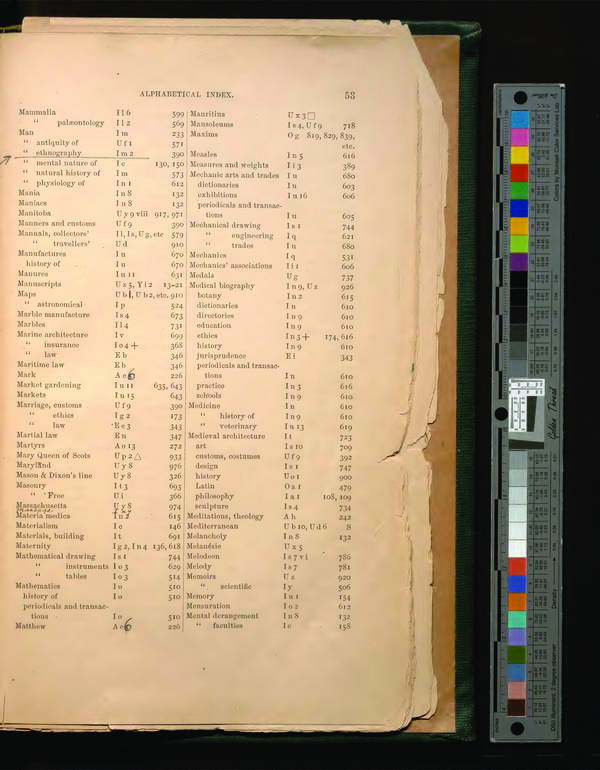 ALPHABETICAL INDEX. 53
Mammalia I l 6 599
" palæontology I l 2 569
Man I m 233
" antiquity of U f 1 571
" ethnography I m 2 390
" mental nature of I c 130, 150
" natural history of I m 573
" physiology of I n 1 612
Mania I n 8 132
Maniacs I n 8 132
Manitoba U y 9 viii 917, 971
Manners and customs U f 9 390
Manuals, collectors' I l, I s, U g, etc 579
" travellers' U d 910
Manufactures I u 670
history of I u 670
Manures I u 11 631
Manuscripts U z 5, Y l 2 13-21
Maps U b 1, U b 2, etc. 910
" astronomical I p 524
Marble manufacture I s 4 673
Marbles I l 4 731
Marine architecture I v 699
" insurance I o 4 + 368
" law E b 346
Maritime law E b 346
Mark A c 6 226
Market gardening I u 11 635, 643
Markets I u 15 643
Marriage, customs U f 9 390
" ethics I g 2 173
" law E e 3 343
Martial law E n 347
Martyrs A o 13 272
Mary Queen of Scots U p 2 △ 933
Maryland U y 8 976
Mason & Dixon's line U y 8 326
Masonry I t 3 693
" Free U i 366
Massachusetts U y 8 974
Materia medica I n 2 615
Materialism I c 146
Materials, building I t 691
Maternity I g 2, I n 4 136, 618
Mathematical drawing I s 1 744
" instruments I o 3 629
" tables I o 3 514
Mathematics I o 510
history of I o 510
periodicals and transac-
tions I o 510
Matthew A c 6 226
Mauritius U x 3 □
Mausoleums I s 4, U f 9 718
Maxims O g 819, 829, 839,
etc.
Measles I n 5 616
Measures and weights I i 3 389
Mechanic arts and trades I u 680
dictionaries I u 603
exhibitions I u 16 606
periodicals and transac-
tions I u 605
Mechanical drawing I s 1 744
" engineering I q 621
" trades I u 680
Mechanics I q 531
Mechanics' associations I i 1 606
Medals U g 737
Medical biography I n 9, U z 926
botany I n 2 615
dictionaries I n 610
directories I n 9 610
education I n 9 610
ethics I n 3 + 174, 616
history I n 9 610
jurisprudence E l 343
periodicals and transac-
tions I n 610
practice I n 3 616
schools I n 9 610
Medicine I n 610
" history of I n 9 610
" veterinary I u 13 619
Medieval architecture I t 723
art I s 10 709
customs, costumes U f 9 392
design I s 1 747
history U o 1 900
Latin O a 1 479
philosophy I a 1 108, 109
sculpture I s 4 734
Meditations, theology A h 242
Mediterranean U b 10, U d 6 8
Melancholy I n 8 132
Melanésie U x 5
Melodeon I s 7 vi 786
Melody I s 7 781
Memoirs U z 920
" scientific I y 506
Memory I u 1 154
Mensuration I o 2 612
Mental derangement I n 8 132
" faculties I c 158
Golden Thread